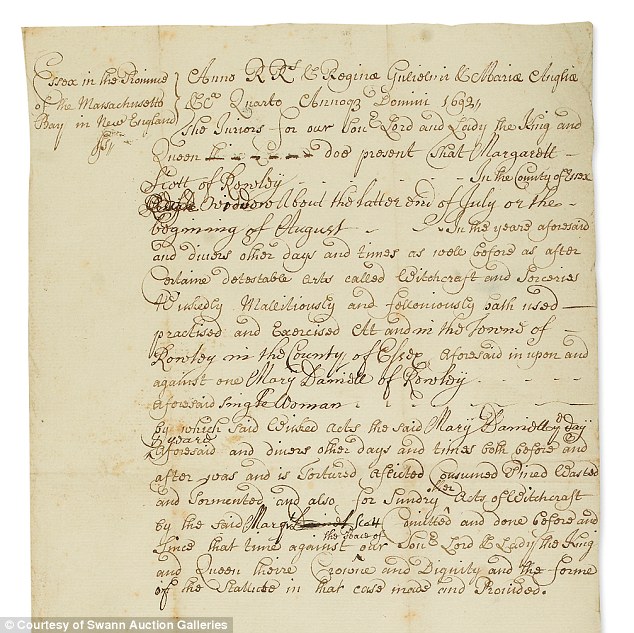 Essex in the Province
of the Massachusetts
Bay in New England
ss
Anno R Rs & Reginæ Gulielmi & Mariæ Angliæ
&ca Quarto Annoq Domini 1692
The Juriors for our Sou: Lord and Lady the King and
Queen doe present That Margarett
Scott of Rowley In the County of Essex
About the latter end of July or the
begining of August In the yeare aforesaid
and divers other days and times as well before as after
Certaine detestable Arts called Witchcraft and Sorceries
Wickedly Mallitiously and felloniously hath used
practised and Exercised At and in the Towne of
Rowley in the County of Essex aforesaid in upon and
against one Mary Daniell of Rowley
aforesaid Single Woman
by which said Wicked Acts the said Mary Daniell ye day
& yeare
aforesaid and divers other days and times both before and
after was and is Tortured aflicted Consumed Pined Wasted
and Tormented and also for Sundry other Acts of Witchcraft
by the said Margt Scott Comitted and done before and
the peace of
Since that time against our Sou: Lord & Lady the King
and Queen theire Crowne and Dignity and the forme
of the Stattute in that case made and Provided.
© Courtesy of Swann Auction Galleries